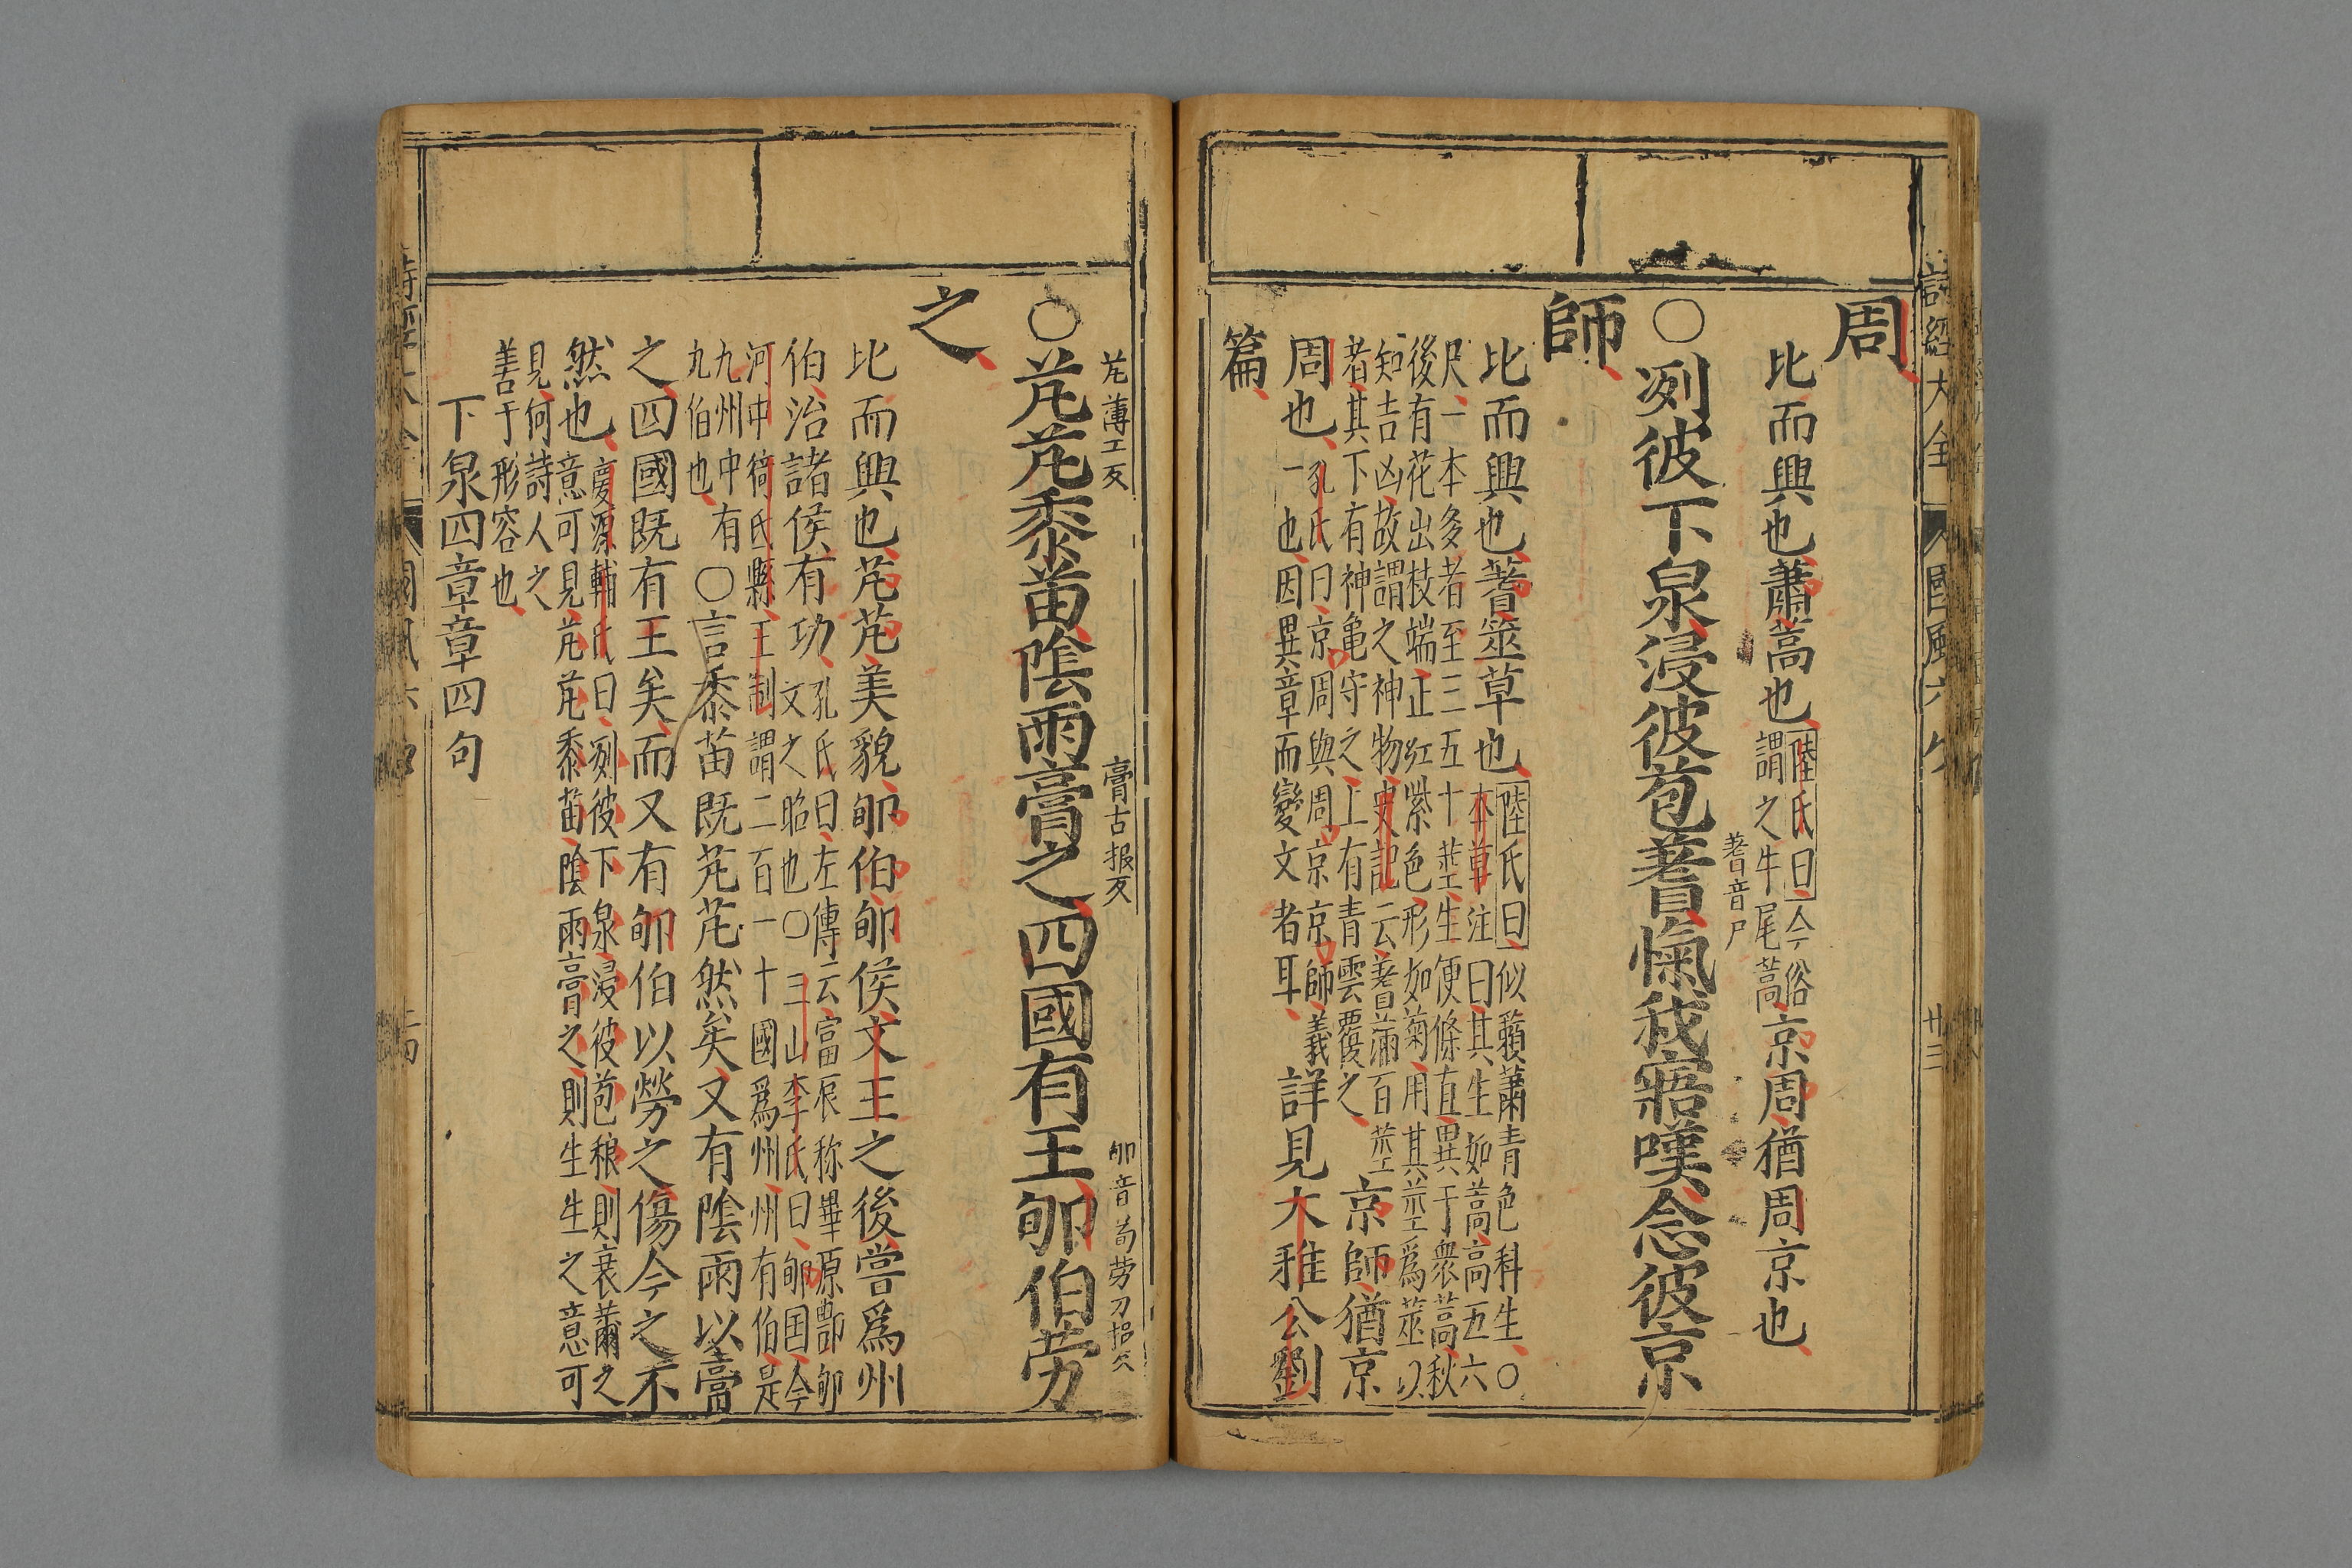 周
比而興也蕭蒿也
陸氏曰今俗
謂之牛尾蒿
京周猶周京也
○冽彼下泉浸彼苞蓍愾我寤嘆念彼京
蓍音尸
師
比而興也蓍筮草也
陸氏曰似藾蕭青色科生○
本草注曰其生如蒿高五六
尺一本多者至三五十莖生便條直異于衆蒿秋
後有花出枝端正紅紫色形如菊用其莖爲筮以
知吉凶故謂之神物史記云蓍滿百莖
者其下有神亀守之上有青雲覆之
京師猶京
周也
孔氏曰京周與周京京師
一也因異章而變文者耳
義詳見大雅公劉
篇
詩經大全
國風六
廿三
芃薄工反
膏古报反
郇音荀劳刀报反
○芃芃黍苗陰雨膏之四國有王郇伯劳
之
比而興也芃芃美貌郇伯郇侯文王之後嘗爲州
伯治諸侯有功
孔氏曰左傳云富辰称畢原酆郇
文之昭也○三山李氏曰郇国今
河中猗氏縣王制謂二百一十國爲州州有伯是
九州中有
九伯也
○言黍苗既芃芃然矣又有陰雨以膏
之四國既有王矣而又有郇伯以勞之傷今之不
然也
慶源輔氏曰冽彼下泉浸彼苞稂則衰薾之
意可見芃芃黍苗陰雨膏之則生生之意可
見何詩人之
善于形容也
下泉四章章四句
國風六